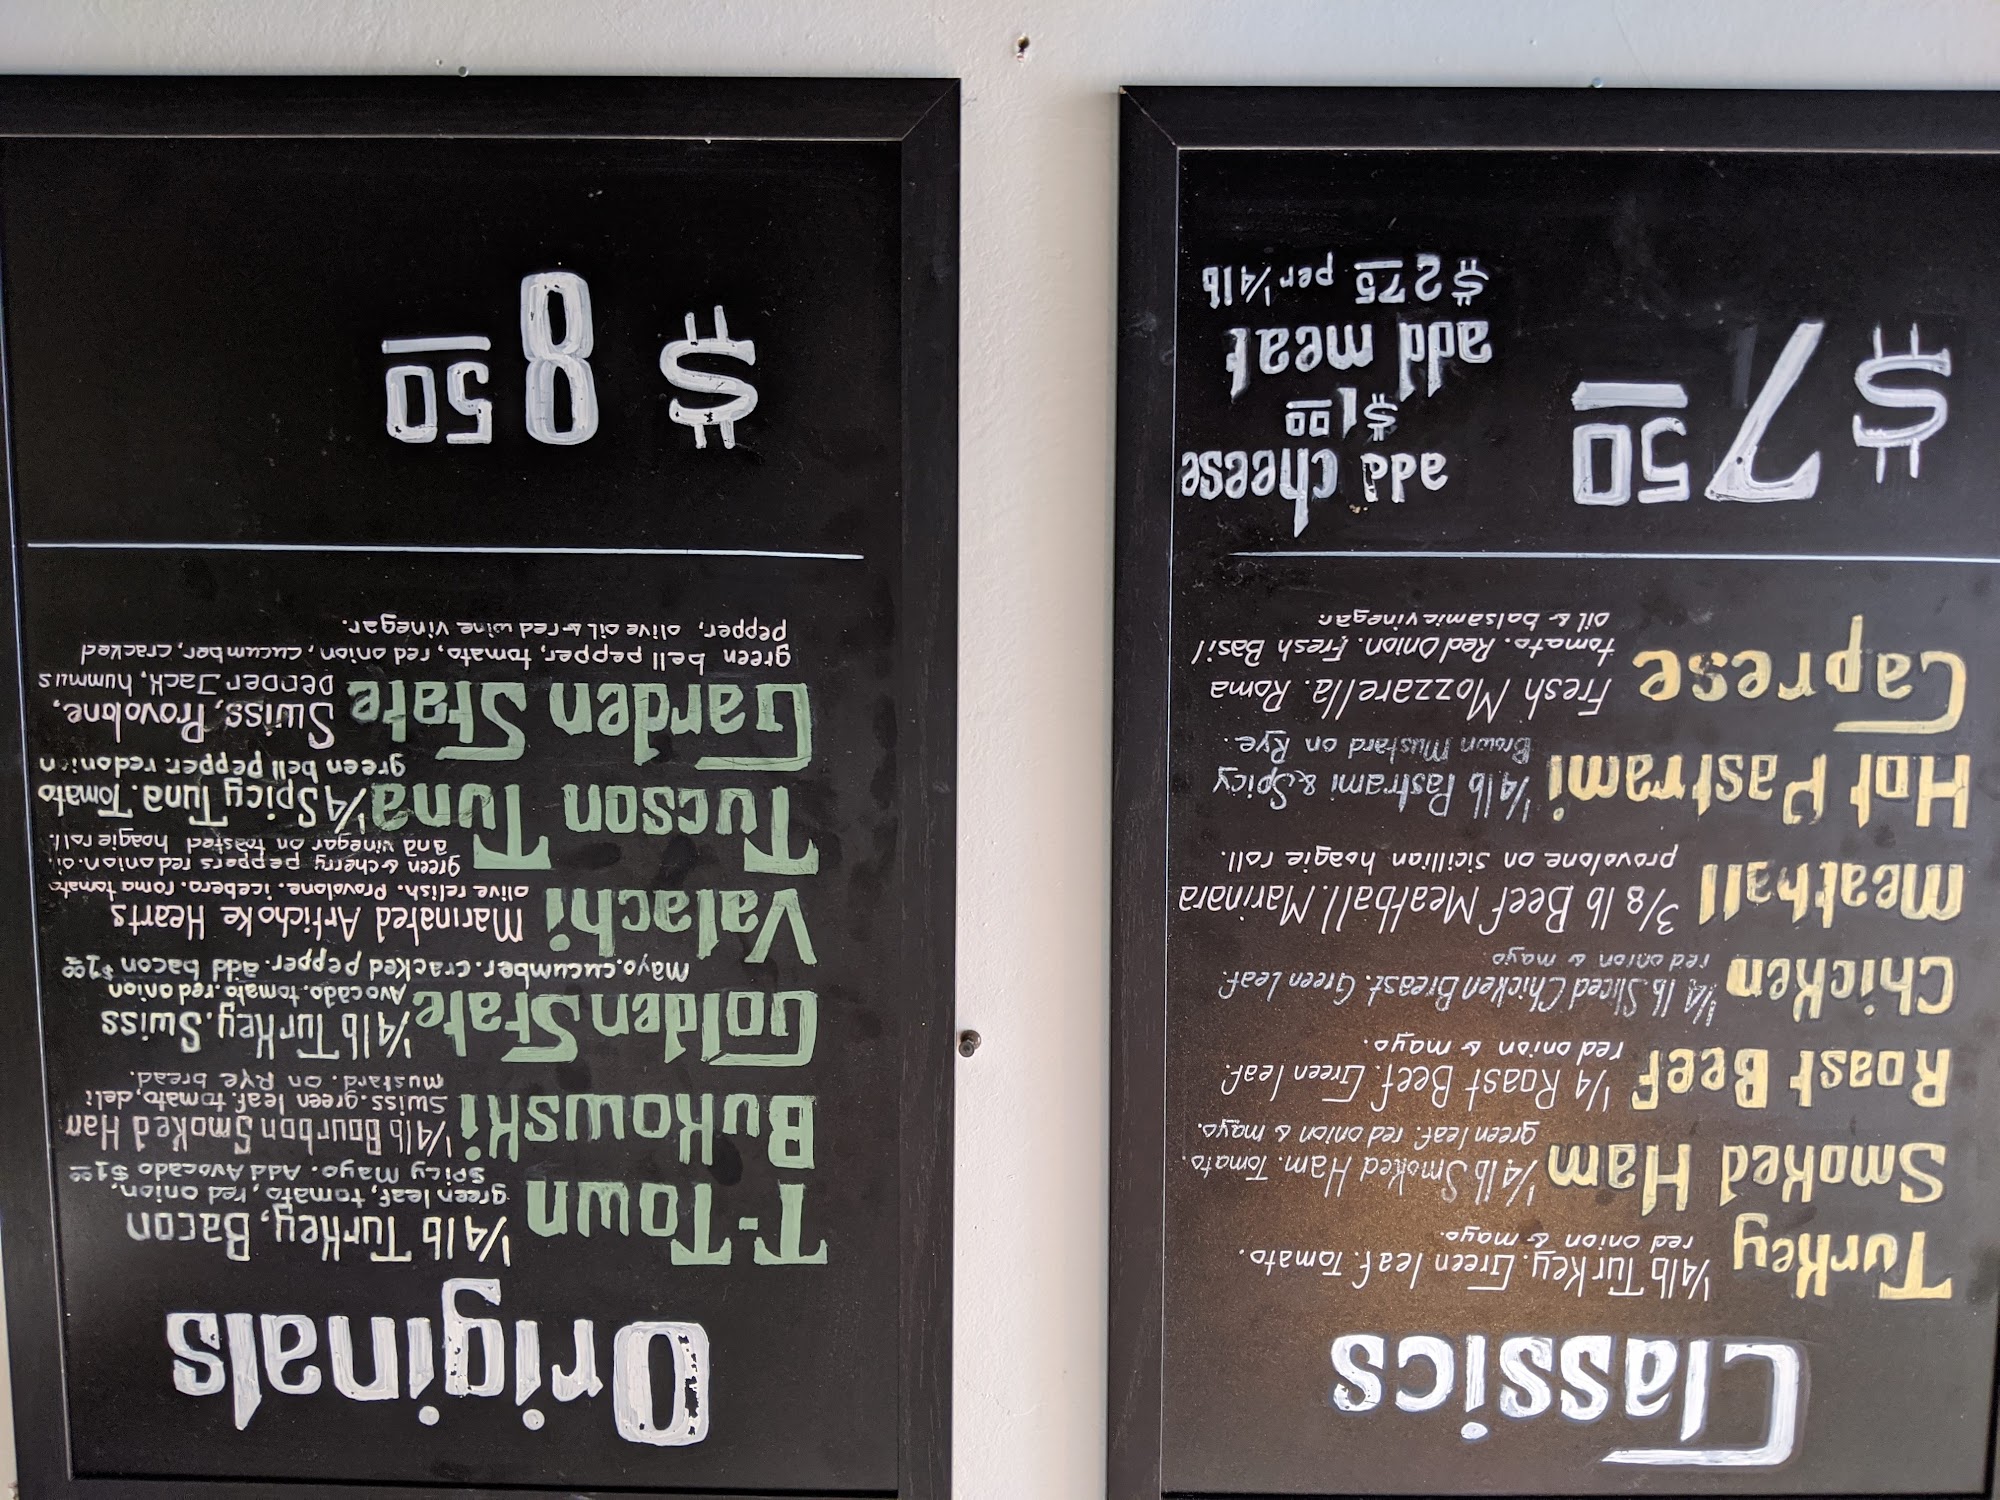 Classics
Turkey 1/4 lb Turkey. Green leaf. Tomato.
red onion & mayo.
Smoked Ham 1/4 lb Smoked Ham. Tomato.
green leaf. red onion & mayo.
Roast Beef 1/4 Roast Beef. Green leaf.
red onion & mayo.
Chicken 1/4 lb Sliced Chicken Breast. Green Leaf.
red onion & mayo
Meatball 3/8 lb Beef Meatball. Marinara
provolone on Sicillian hoagie roll.
Hot Pastrami 1/4 lb Pastrami & Spicy
Brown Mustard on Rye.
Caprese Fresh Mozzarella. Roma
tomato. Red Onion. Fresh Basil
oil & balsamic vinegar
$7 50
add cheese
$1 00
add meat
$2 75 per 1/4 lb
Originals
T-Town 1/4 lb Turkey, Bacon
green leaf, tomato, red onion,
spicy mayo. Add Avocado $1 00
Bukowski 1/4 lb Bourbon Smoked Ham
Swiss. green leaf. tomato, deli
mustard. on Rye bread.
Golden State 1/4 lb Turkey. Swiss
Avocado. tomato. red onion
mayo. cucumber. cracked pepper. add bacon $1 00
Valachi Marinated Artichoke Hearts
olive relish. Provolone. iceberg. roma tomato
green & cherry peppers red onion. oil
and vinegar on toasted hoagie roll.
Tucson Tuna 1/4 Spicy Tuna. Tomato
green bell pepper. red onion
Garden State Swiss, Provolone,
pepper Jack, hummus
green bell pepper, tomato, red onion, cucumber, cracked
pepper, olive oil & red wine vinegar.
$8 50